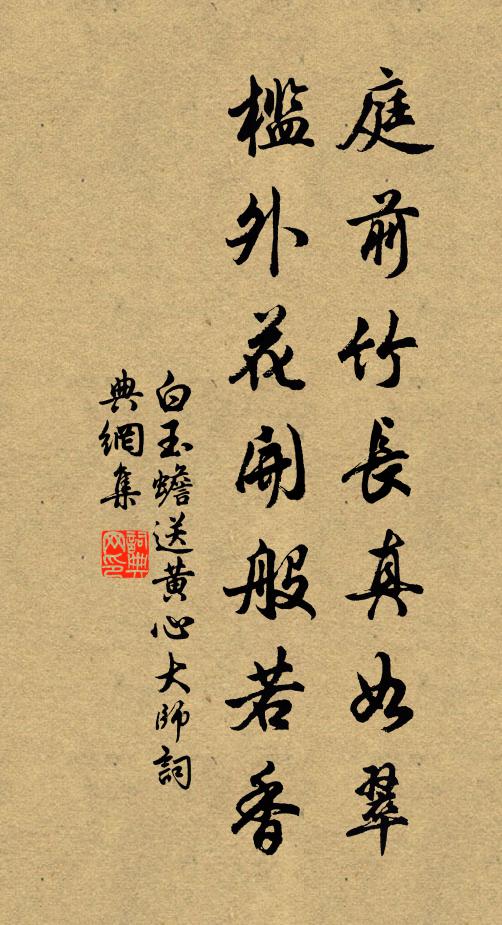 庭前竹長真如翠
檻外花開般若香
白玉蟾送黄心大師詞
典網集
詞典网印